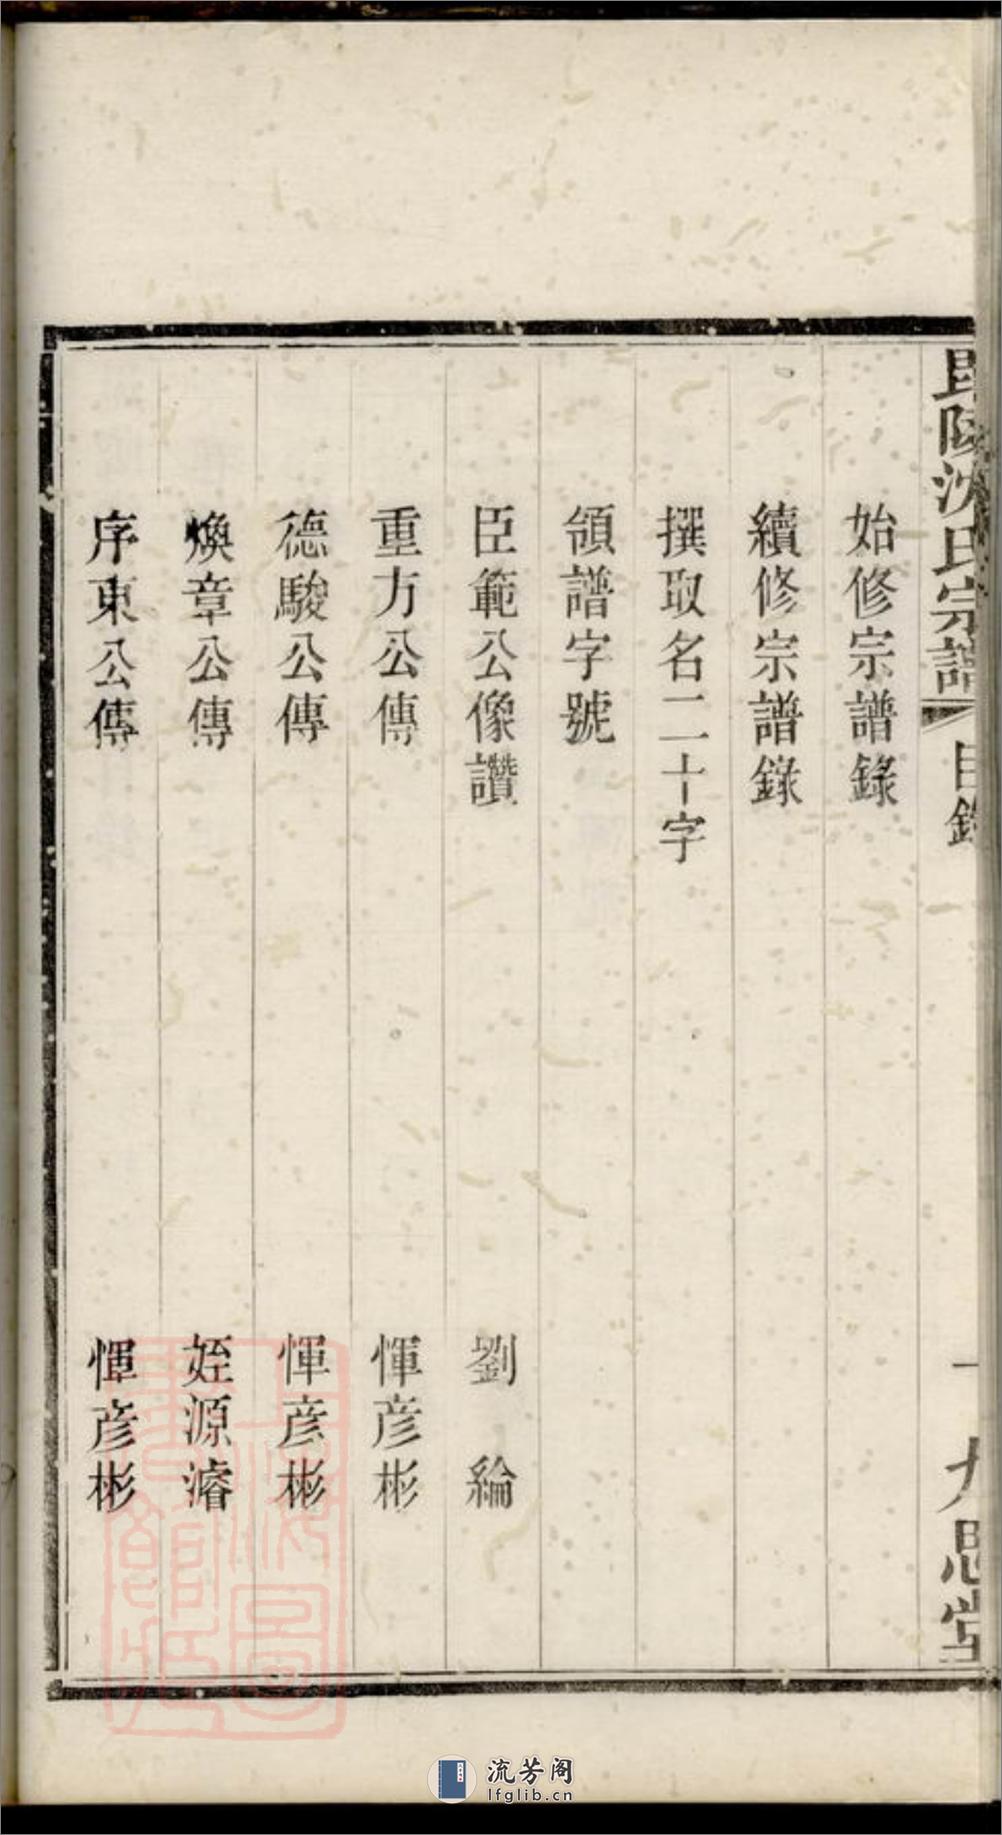 毘陵沈氏宗譜 目錄 一 九思堂
始修宗譜錄
續修宗譜錄
撰取名二十字
領譜字號
臣範公像讚 劉綸
重方公傳 惲彥彬
德駿公傳 惲彥彬
煥章公傳 姪源濬
序東公傳 惲彥彬
上海圖書館藏
流芳阁
lfglib.cn